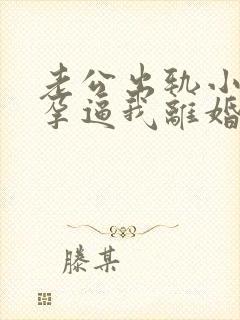 老公出轨小
孕逼我離婚
滕某